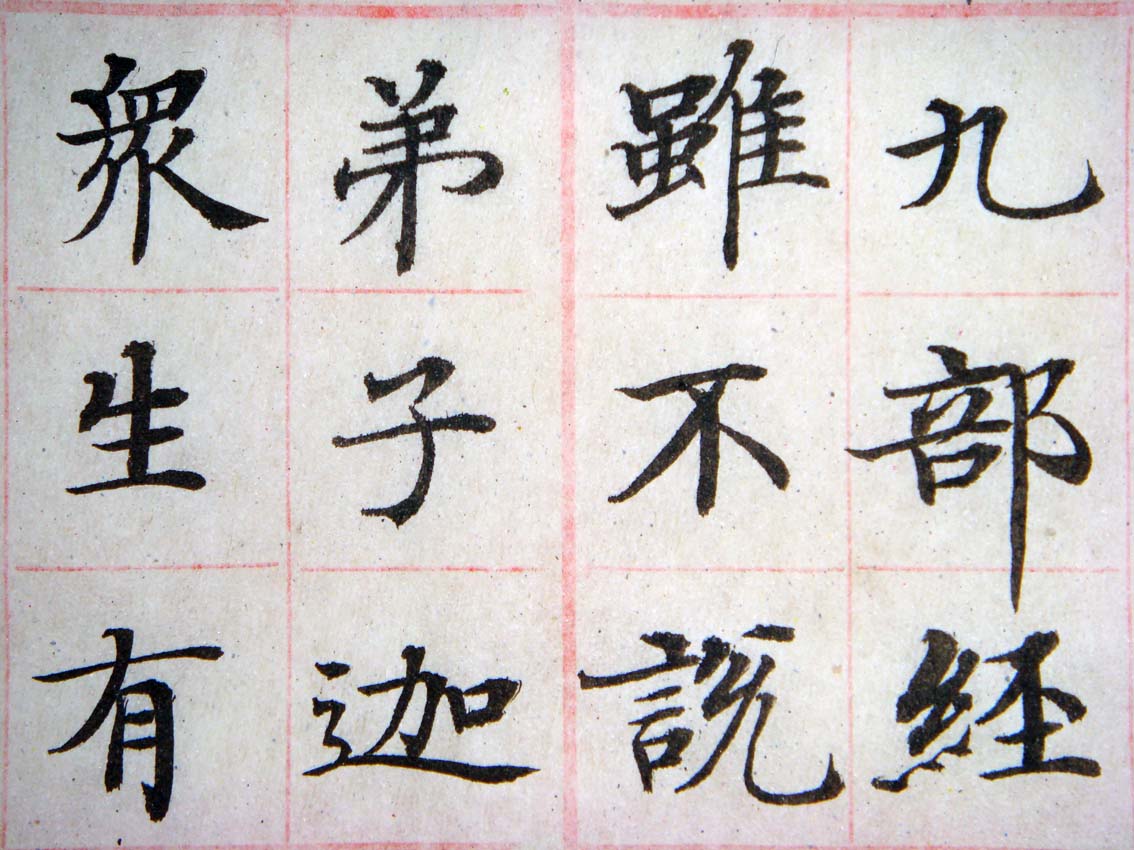 九部経
雖不説
弟子迦
眾生有